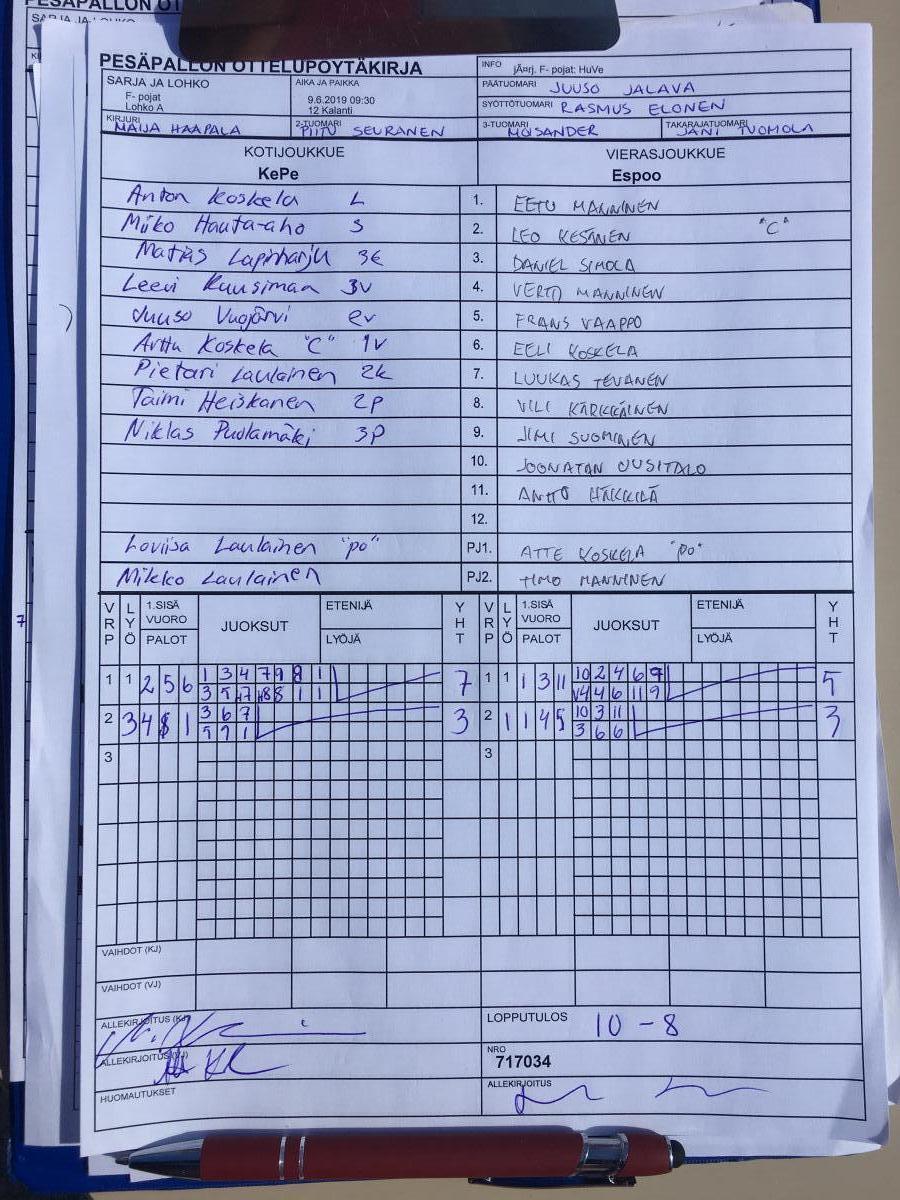 PESÄPALLON OTTELUPÖYTÄKIRJA
INFO jÄ¤rj. F- pojat: HuVe
SARJA JA LOHKO
F- pojat
Lohko A
AIKA JA PAIKKA
9.6.2019 09:30
12 Kalanti
PÄÄTUOMARI JUUSO JALAVA
SYÖTTÖTUOMARI RASMUS ELONEN
KIRJURI MAIJA HAAPALA
2-TUOMARI PIITU SEURANEN
3-TUOMARI MOISANDER
TAKARAJATUOMARI JANI TUOMOLA
KOTIJOUKKUE
KePe
VIERASJOUKKUE
Espoo
Anton Koskela L 1. EETU MANNINEN
Miiko Hauta-aho S 2. LEO KESÄNEN "C"
Matias Lapinharju 3E 3. DANIEL SIMOLA
Leevi Kuusiman 3V 4. VERTO MANNINEN
Juuso Vuojärvi ev 5. FRANS VAAPPO
Arttu Koskela "C" 1v 6. EELI KOSKELA
Pietari Laulainen 2k 7. LUUKAS TEVANEN
Taimi Heiskanen 2P 8. VILI KÄRKKÄINEN
Niklas Puolamäki 3P 9. JIMI SUOMINEN
10. JOONATAN UUSITALO
11. ANTTO HÄKKILÄ
12.
Loviisa Laulainen "po" PJ1. ATTE KOSKELA "PO"
Mikko Laulainen PJ2. TIMO MANNINEN
VRP LYÖ 1.SISÄ VUORO PALOT JUOKSUT ETENIJÄ LYÖJÄ YHT VRP LYÖ 1.SISÄ VUORO PALOT JUOKSUT ETENIJÄ LYÖJÄ YHT
1 1 2 5 6 1 3 4 7 9 8 1 7 1 1 1 3 11 10 2 4 6 9 5
4 4 6 11 9
2 3 4 8 1 3 6 7 3 2 1 1 4 5 10 3 11 3
5 9 1 3 6 6
3 3
VAIHDOT (KJ)
VAIHDOT (VJ)
ALLEKIRJOITUS (KJ)
LOPPUTULOS 10 - 8
ALLEKIRJOITUS (VJ)
NRO
717034
HUOMAUTUKSET
ALLEKIRJOITUS